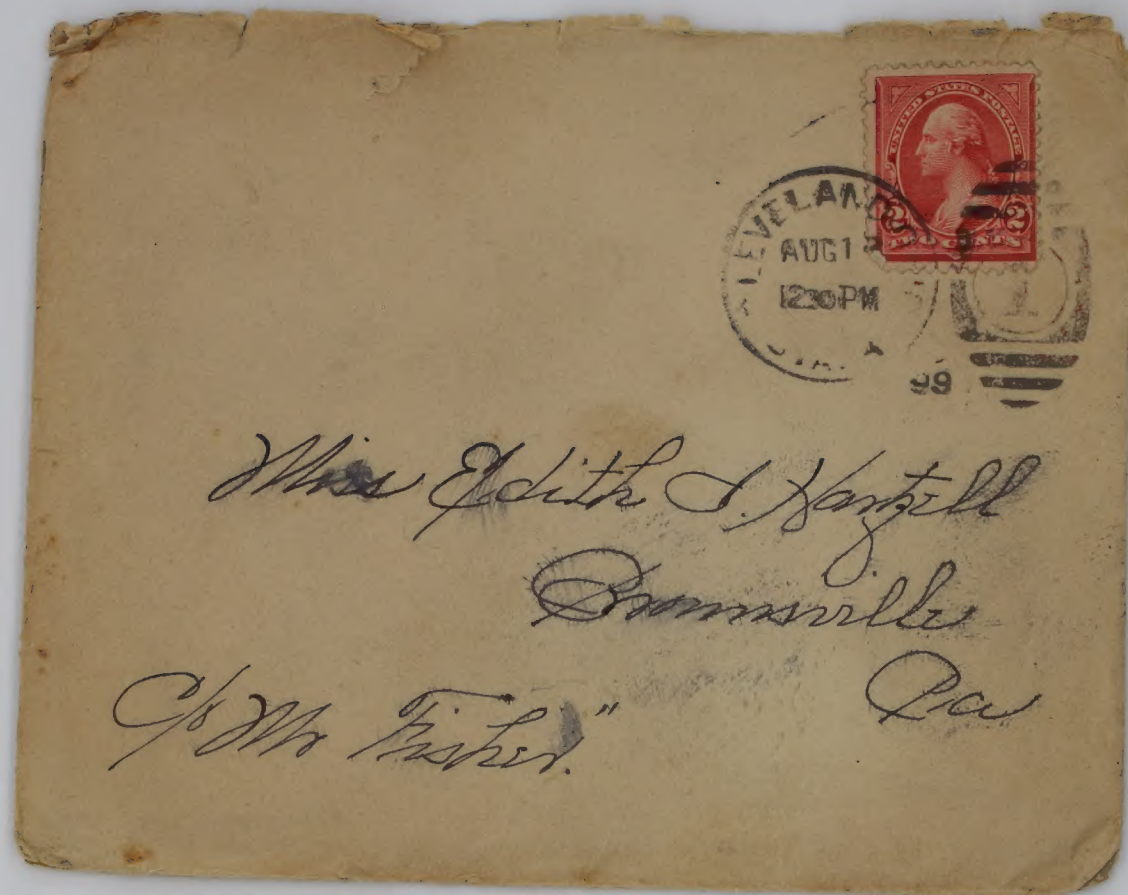 UNITED STATES POSTAGE
2 2
TWO CENTS
CLEVELAND
AUG 1
12 30 PM
STA. A
99
1
Miss Edith S. Hartzell
Brownsville
Pa
C/o Mr Fisher."